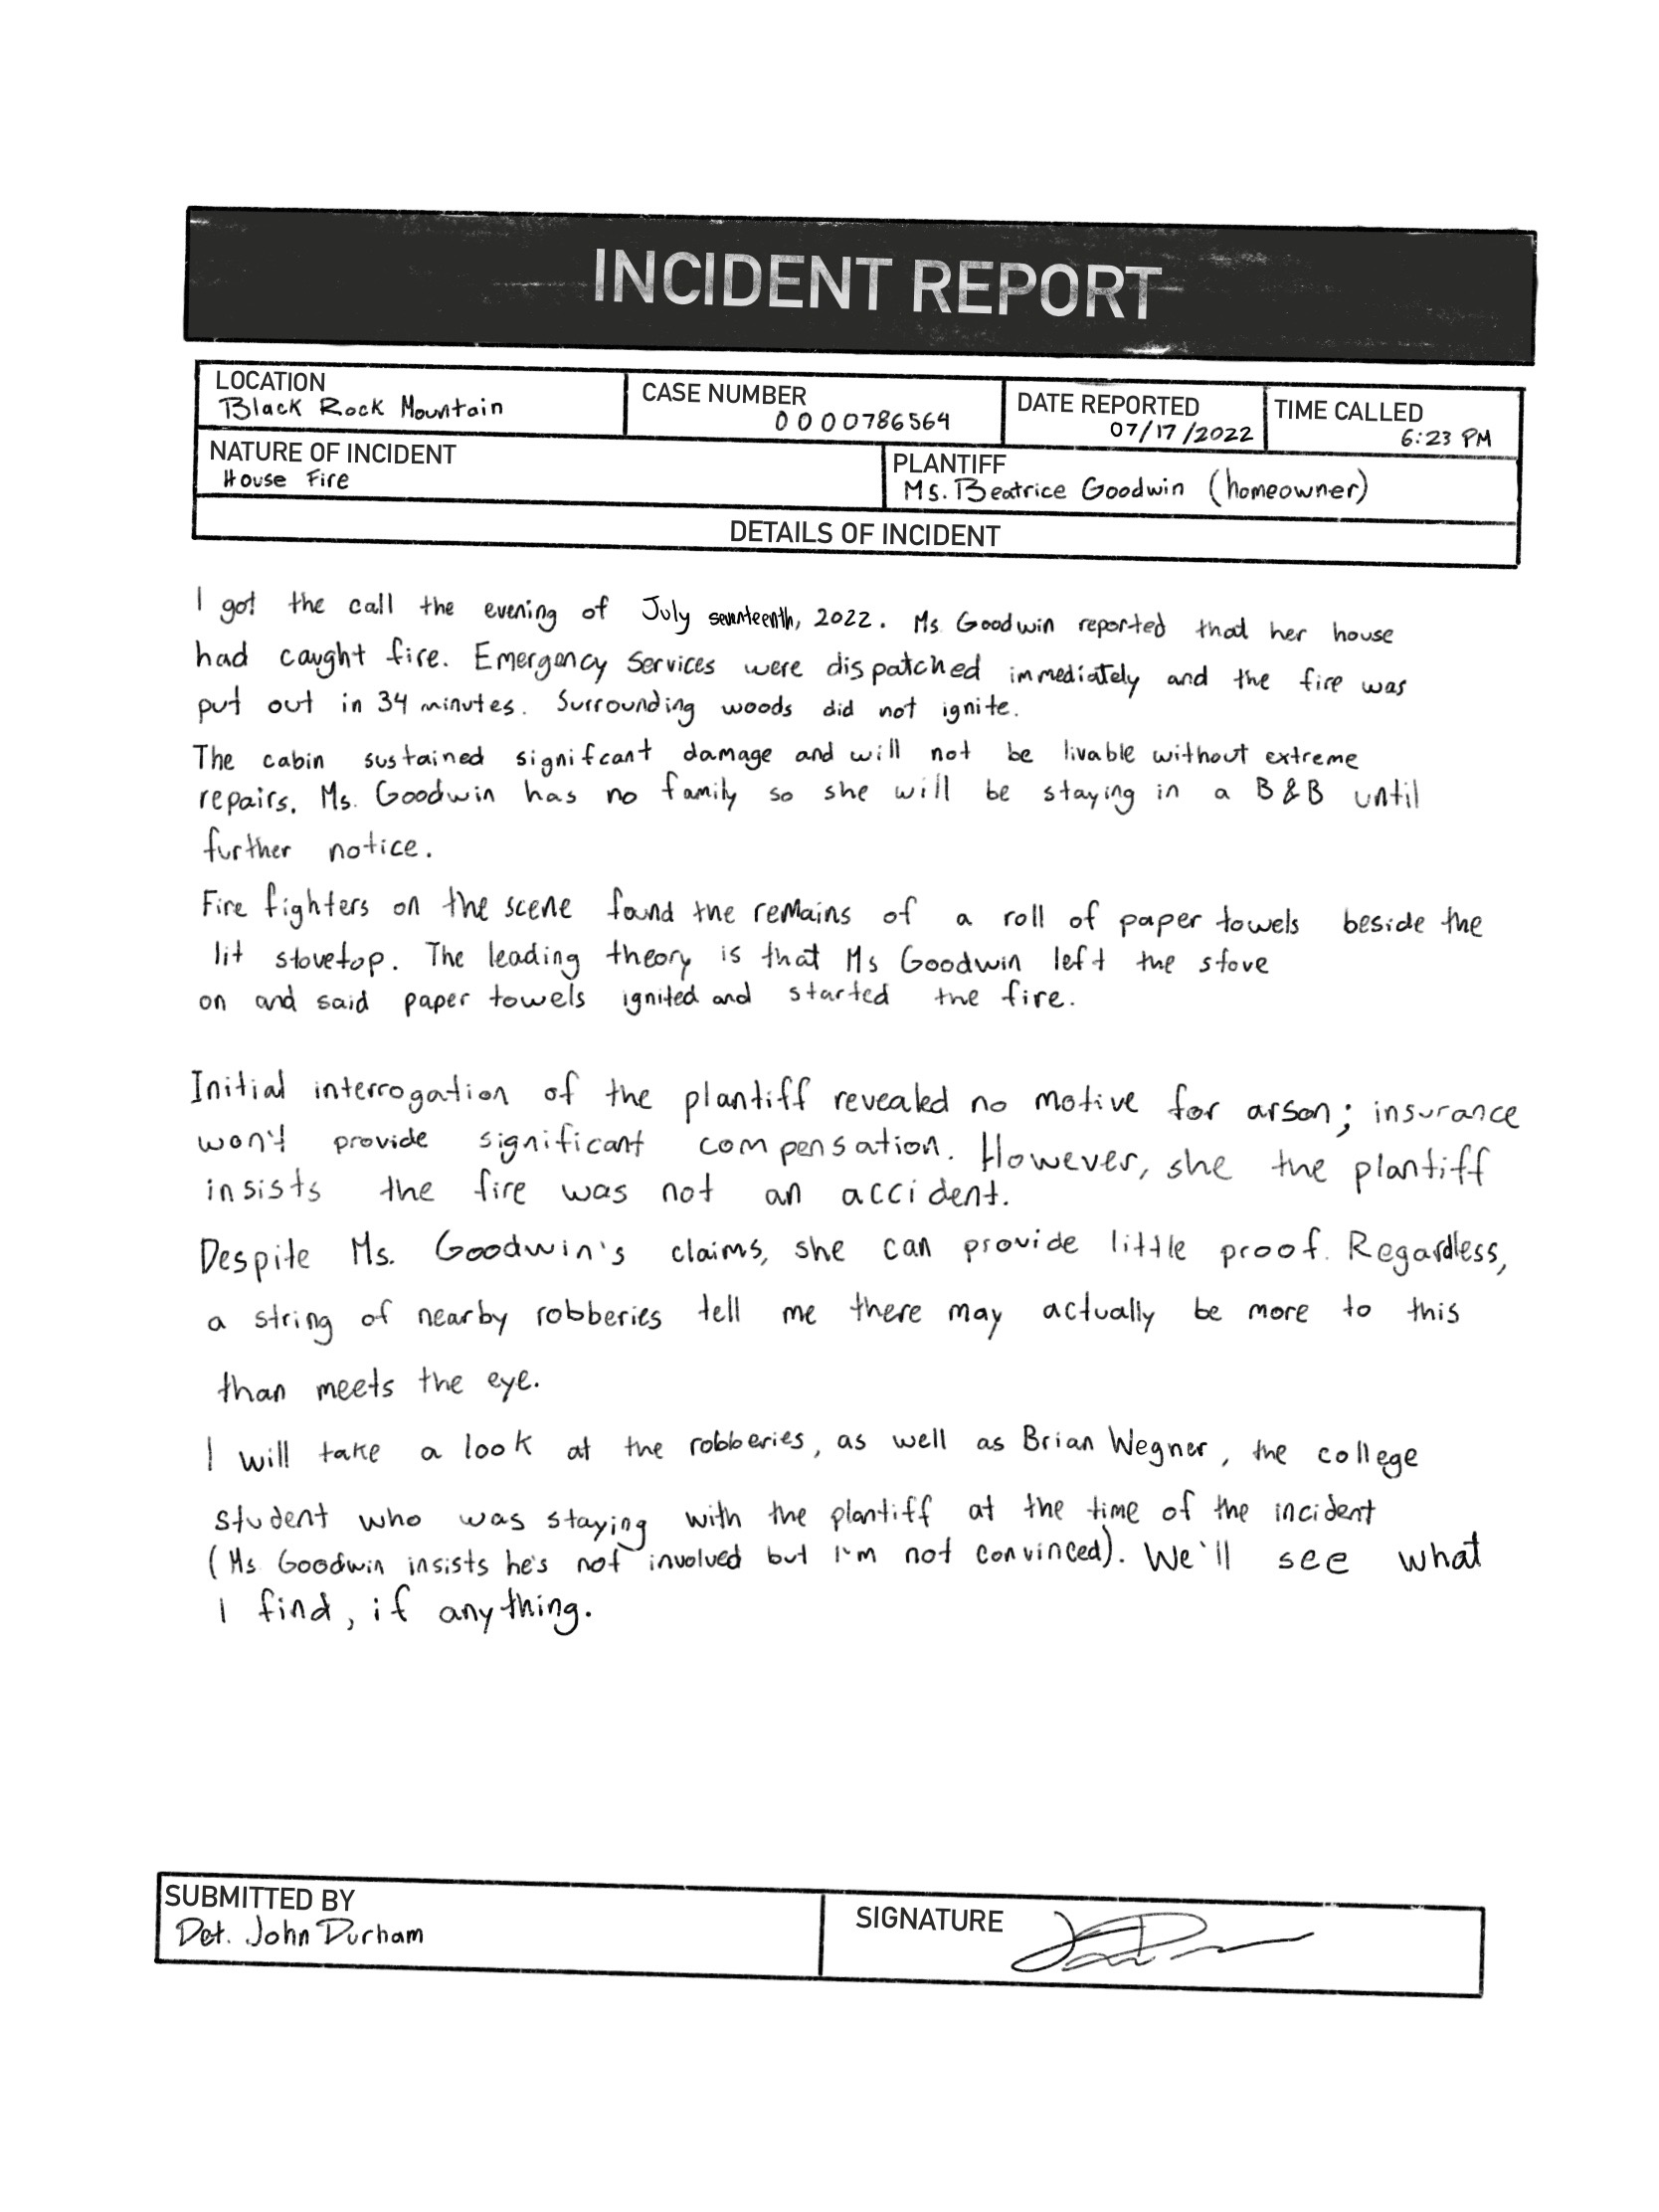 INCIDENT REPORT
LOCATION
Black Rock Mountain
CASE NUMBER
0000786564
DATE REPORTED
07/17/2022
TIME CALLED
6:23 PM
NATURE OF INCIDENT
House Fire
PLANTIFF
Ms. Beatrice Goodwin (homeowner)
DETAILS OF INCIDENT
I got the call the evening of July seventeenth, 2022. Ms. Goodwin reported that her house
had caught fire. Emergency Services were dispatched immediately and the fire was
put out in 34 minutes. Surrounding woods did not ignite.
The cabin sustained signifcant damage and will not be livable without extreme
repairs. Ms. Goodwin has no family so she will be staying in a B&B until
further notice.
Fire fighters on the scene found the remains of a roll of paper towels beside the
lit stovetop. The leading theory is that Ms Goodwin left the stove
on and said paper towels ignited and started the fire.
Initial interrogation of the plantiff revealed no motive for arson; insurance
won't provide significant compensation. However, she the plantiff
insists the fire was not an accident.
Despite Ms. Goodwin's claims, she can provide little proof. Regardless,
a string of nearby robberies tell me there may actually be more to this
than meets the eye.
I will take a look at the robberies, as well as Brian Wegner, the college
student who was staying with the plantiff at the time of the incident
(Ms. Goodwin insists he's not involved but I'm not convinced). We'll see what
I find, if anything.
SUBMITTED BY
Det. John Durham
SIGNATURE